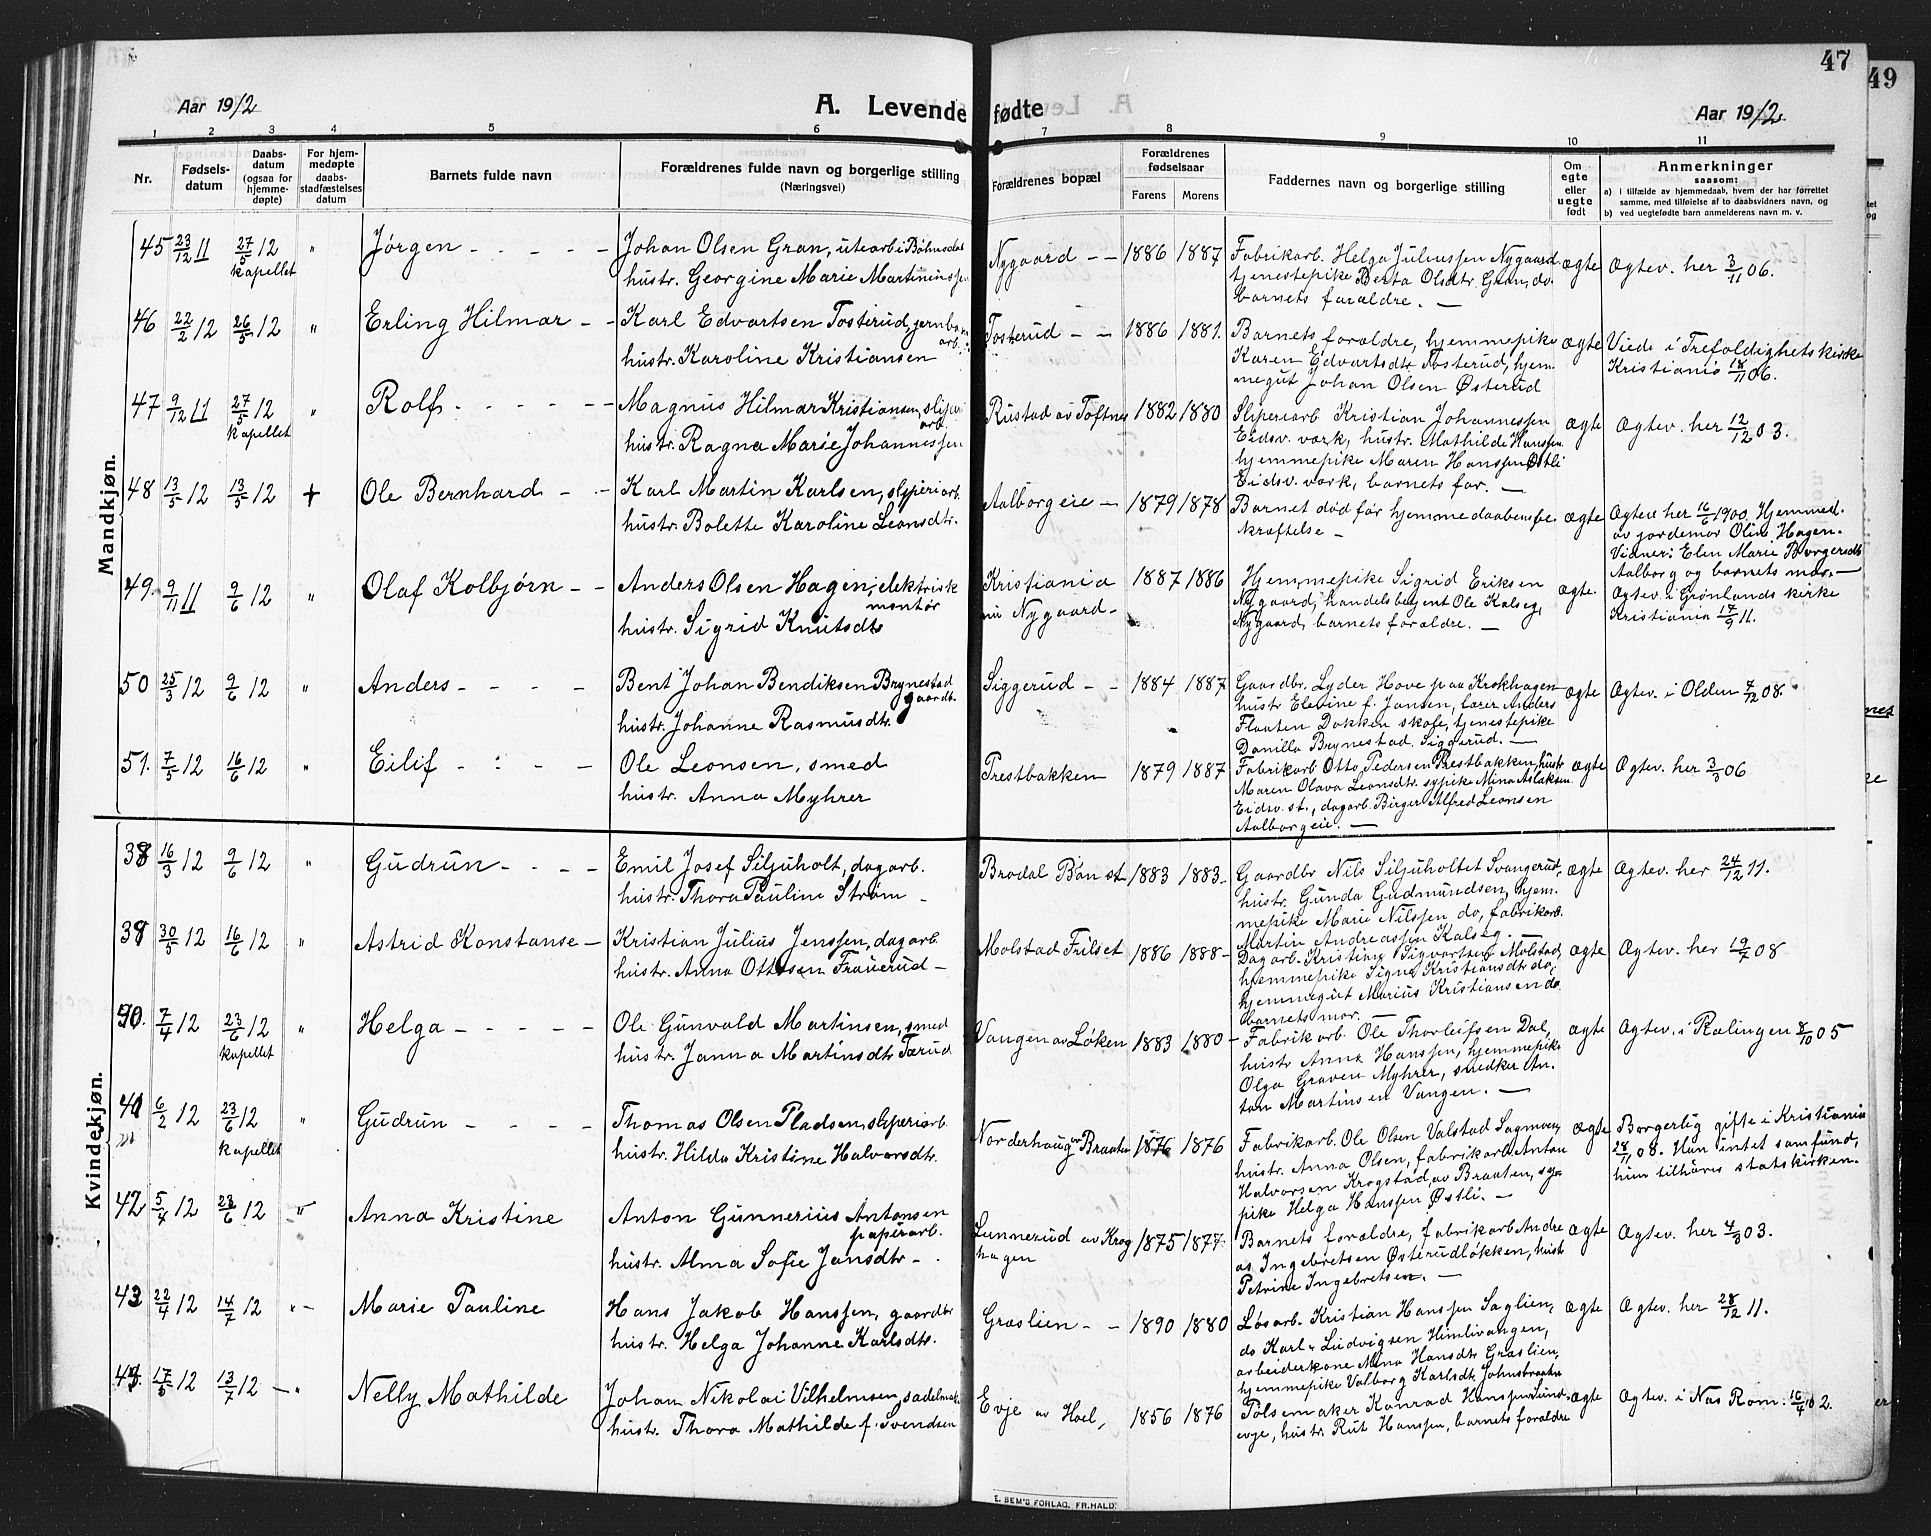 47
49
Aar 1912
A. Levende fødte
Aar 1912.
1 2 3 4 5 6 7 8 9 10 11
Nr.
Fødsels-
datum
Daabs-
datum
(ogsaa for
hjemme-
døpte)
For hjem-
medøpte
daabs-
stadfæstelses
datum
Barnets fulde navn
Forældrenes fulde navn og borgerlige stilling
(Næringsvei)
Forældrenes bopæl
Forældrenes
fødselsaar
Farens Morens
Faddernes navn og borgerlige stilling
Om
egte
eller
uegte
født
Anmerkninger
saasom:
a) i tilfælde av hjemmedaab, hvem der har forrettet
samme, med tilføielse af to daabsvidners navn, og
b) ved uegtefødte barn anmelderens navn m. v.
Mandkjøn.
45 23/12 11 27/5 12 " Jørgen - - - -
kapellet
Johan Olsen Gran, utearb i Bøhnsdal
hustr. Georgine Marie Martininssen
Nygaard - - 1886 1887
Fabrikarb. Helga Juliussen Nygaard
tjenestepike Berta Olsdtr. Gran, do.
barnets forældre. -
ægte Ægtev. her 3/11 06.
46 22/2 12 26/5 12 " Erling Hilmar - -
Karl Edvartsen Tosterud, jernban
arb.
hustr. Karoline Kristiansen
Tosterud - - 1886 1881.
Barnets forældre, hjemmepike
Karen Edvartsdtr Tosterud, hjem-
megut Johan Olsen Østerud
ægte Viede i Trefoldighetskirke
Kristiania 18/11 06.
47 9/12 11 27/5 12 " Rolf - - - - -
kapellet
Magnus Hilmar Kristiansen, sliperi
arb.
hustr. Ragna Marie Johannessen
Rustad av Toftner 1882 1880
Sliperiarb Kristian Johannessen
Eidsv. værk, hustr. Mathilde Hanssen
hjemmepike Maren Hanssen Østli
Eidsv. værk, barnets far. -
ægte Ægtev. her 12/12 03.
48 13/5 12 13/5 12 + Ole Bernhard - -
Karl Martin Karlsen, sliperiarb.
hustr. Bolette Karoline Leonsdtr.
Aalborgeie - 1879 1878
Barnet død før hjemmedaabens be-
kræftelse -
ægte Ægtev. her 16/6 1900. Hjemmed.
av jordemor Oline Hagen.
Vidner: Elen Marie Borgersdtr
Aalborg og barnets mor. -
49. 9/11 11 9/6 12 " Olaf Kolbjørn - -
Anders Olsen Hagen, elektrisk
montør
hustr. Sigrid Knutsdtr
Kristiania
nu Nygaard - 1887 1886
Hjemmepike Sigrid Eriksen
Nygaard, handelsbetjent Ole Kalseg,
Nygaard, barnets forældre. -
ægte. Ægtev. i Grønlands kirke
Kristiania 17/9 11.
50 25/3 12 9/6 12 " Anders - - - -
Bent Johan Bendiksen Brynestad
gaardbr.
hustr. Johanne Rasmusdtr.
Siggerud - - 1884 1887
Gaardbr. Lyder Hove paa Krokhagen
hustr Elevine f. Jansen, lærer Anders
Flaaten Dokken skole, tjenestepike
Danilla Brynestad Siggerud. -
ægte Ægtev. i Olden 7/12 08.
51. 7/5 12 16/6 12 " Eilif - - - -
Ole Leonsen, smed
hustr. Anna Myhrer
Prestbakken 1879 1887
Fabrikarb Otto Pedersen Prestbakken, hustr
Maren Olava Leonsdtr. sypike Mina Aslaksen
Eidsv. st., dagarb. Birger Alfred Leonsen
Aalborgeie. -
ægte Ægtev. her 3/3 06
Kvindekjøn.
38 16/3 12 9/6 12 " Gudrun - - - -
Emil Josef Siljuholt, dagarb.
hustr. Thora Pauline Strøm -
Brodal Bøn st. 1883 1883 -
Gaardbr Nils Siljuholtet Svangerud,
hustr. Gunda Gudmundsen, hjem-
mepike Marie Nilssen do, fabrikarb.
Martin Andreassen Kalseg. -
ægte Ægtev. her 24/12 11.
39 30/5 12 16/6 12 " Astrid Konstanse -
Kristian Julius Jenssen, dagarb.
hustr. Anna Ottosen Frauerud -
Molstad Frilset 1886 1888 -
Dagarb. Kristian Sigvartsen Molstad,
hjemmepike Signe Kristiansdtr do,
hjemmegut Marius Kristiansen do.
barnets mor. -
ægte Ægtev. her 19/7 08
40. 7/4 12 23/6 12 " Helga - - - - -
kapellet
Ole Gunvald Martinsen, smed
hustr. Janna Martinsdtr Tærud
Vangen av Løken 1883 1880 -
Fabrikarb. Ole Thorleifsen Dal,
hustr Anna Hanssen, hjemmepike
Olga Graven Myhrer, snedker An-
ton Martinsen Vangen. -
ægte Ægtev. i Rælingen 8/10 05
41 6/2 12 23/6 12 " Gudrun - - - -
kapellet
Thomas Olsen Pladsen, sliperiarb.
hustr. Hilda Kristine Halvorsdtr.
Norderhaug av Braaten 1876 1876
Fabrikarb. Ole Olsen Valstad Sagmoen,
hustr. Anna Olsen, fabrikarb Anton
Halvorsen Krogstad, av Braaten, sy-
pike Helga Hanssen Østli. -
ægte Borgerlig gifte i Kristiania
28/11 08. Han intet samfund,
hun tilhører statskirken.
42 5/4 12 23/6 12 " Anna Kristine
Anton Gunnerius Antonsen
papirarb.
hustr. Alma Sofie Jansdtr -
Lunnerud av Krog
hagen 1875 1877.
Barnets forældre, fabrikarb Andre
as Ingebretsen Østerudløkken, hustr
Petrine Ingebretsen. -
ægte Ægtev. her 4/3 03.
43 22/4 12 14/7 12 " - Marie Pauline
Hans Jakob Hanssen, gaardbr
hustr. Helga Johanne Karlsdtr.
Græslien - - 1890 1880
Løsarb. Kristian Hanssen Saglien,
do Karl Ludvigsen Himlivangen,
arbeiderkone Mina Hansdtr Græslien,
hjemmepike Valborg Karlsdtr Johnsbraaten
ægte Ægtev. her 28/12 11.
44. 17/5 12 13/7 12 - " Nelly Mathilde
Johan Nikolai Vilhelmsen, sadelmak
hustr. Thora Mathilde f. Svendsen
Evje av Hoel, 1856 1876
Pølsemaker Konrad Hanssen Sund-
evje, hustr. Rut Hanssen, barnets forældre
ægte Ægtev. i Næs Rom. 16/4 02.
E. SEM'S FORLAG, FR.HALD.